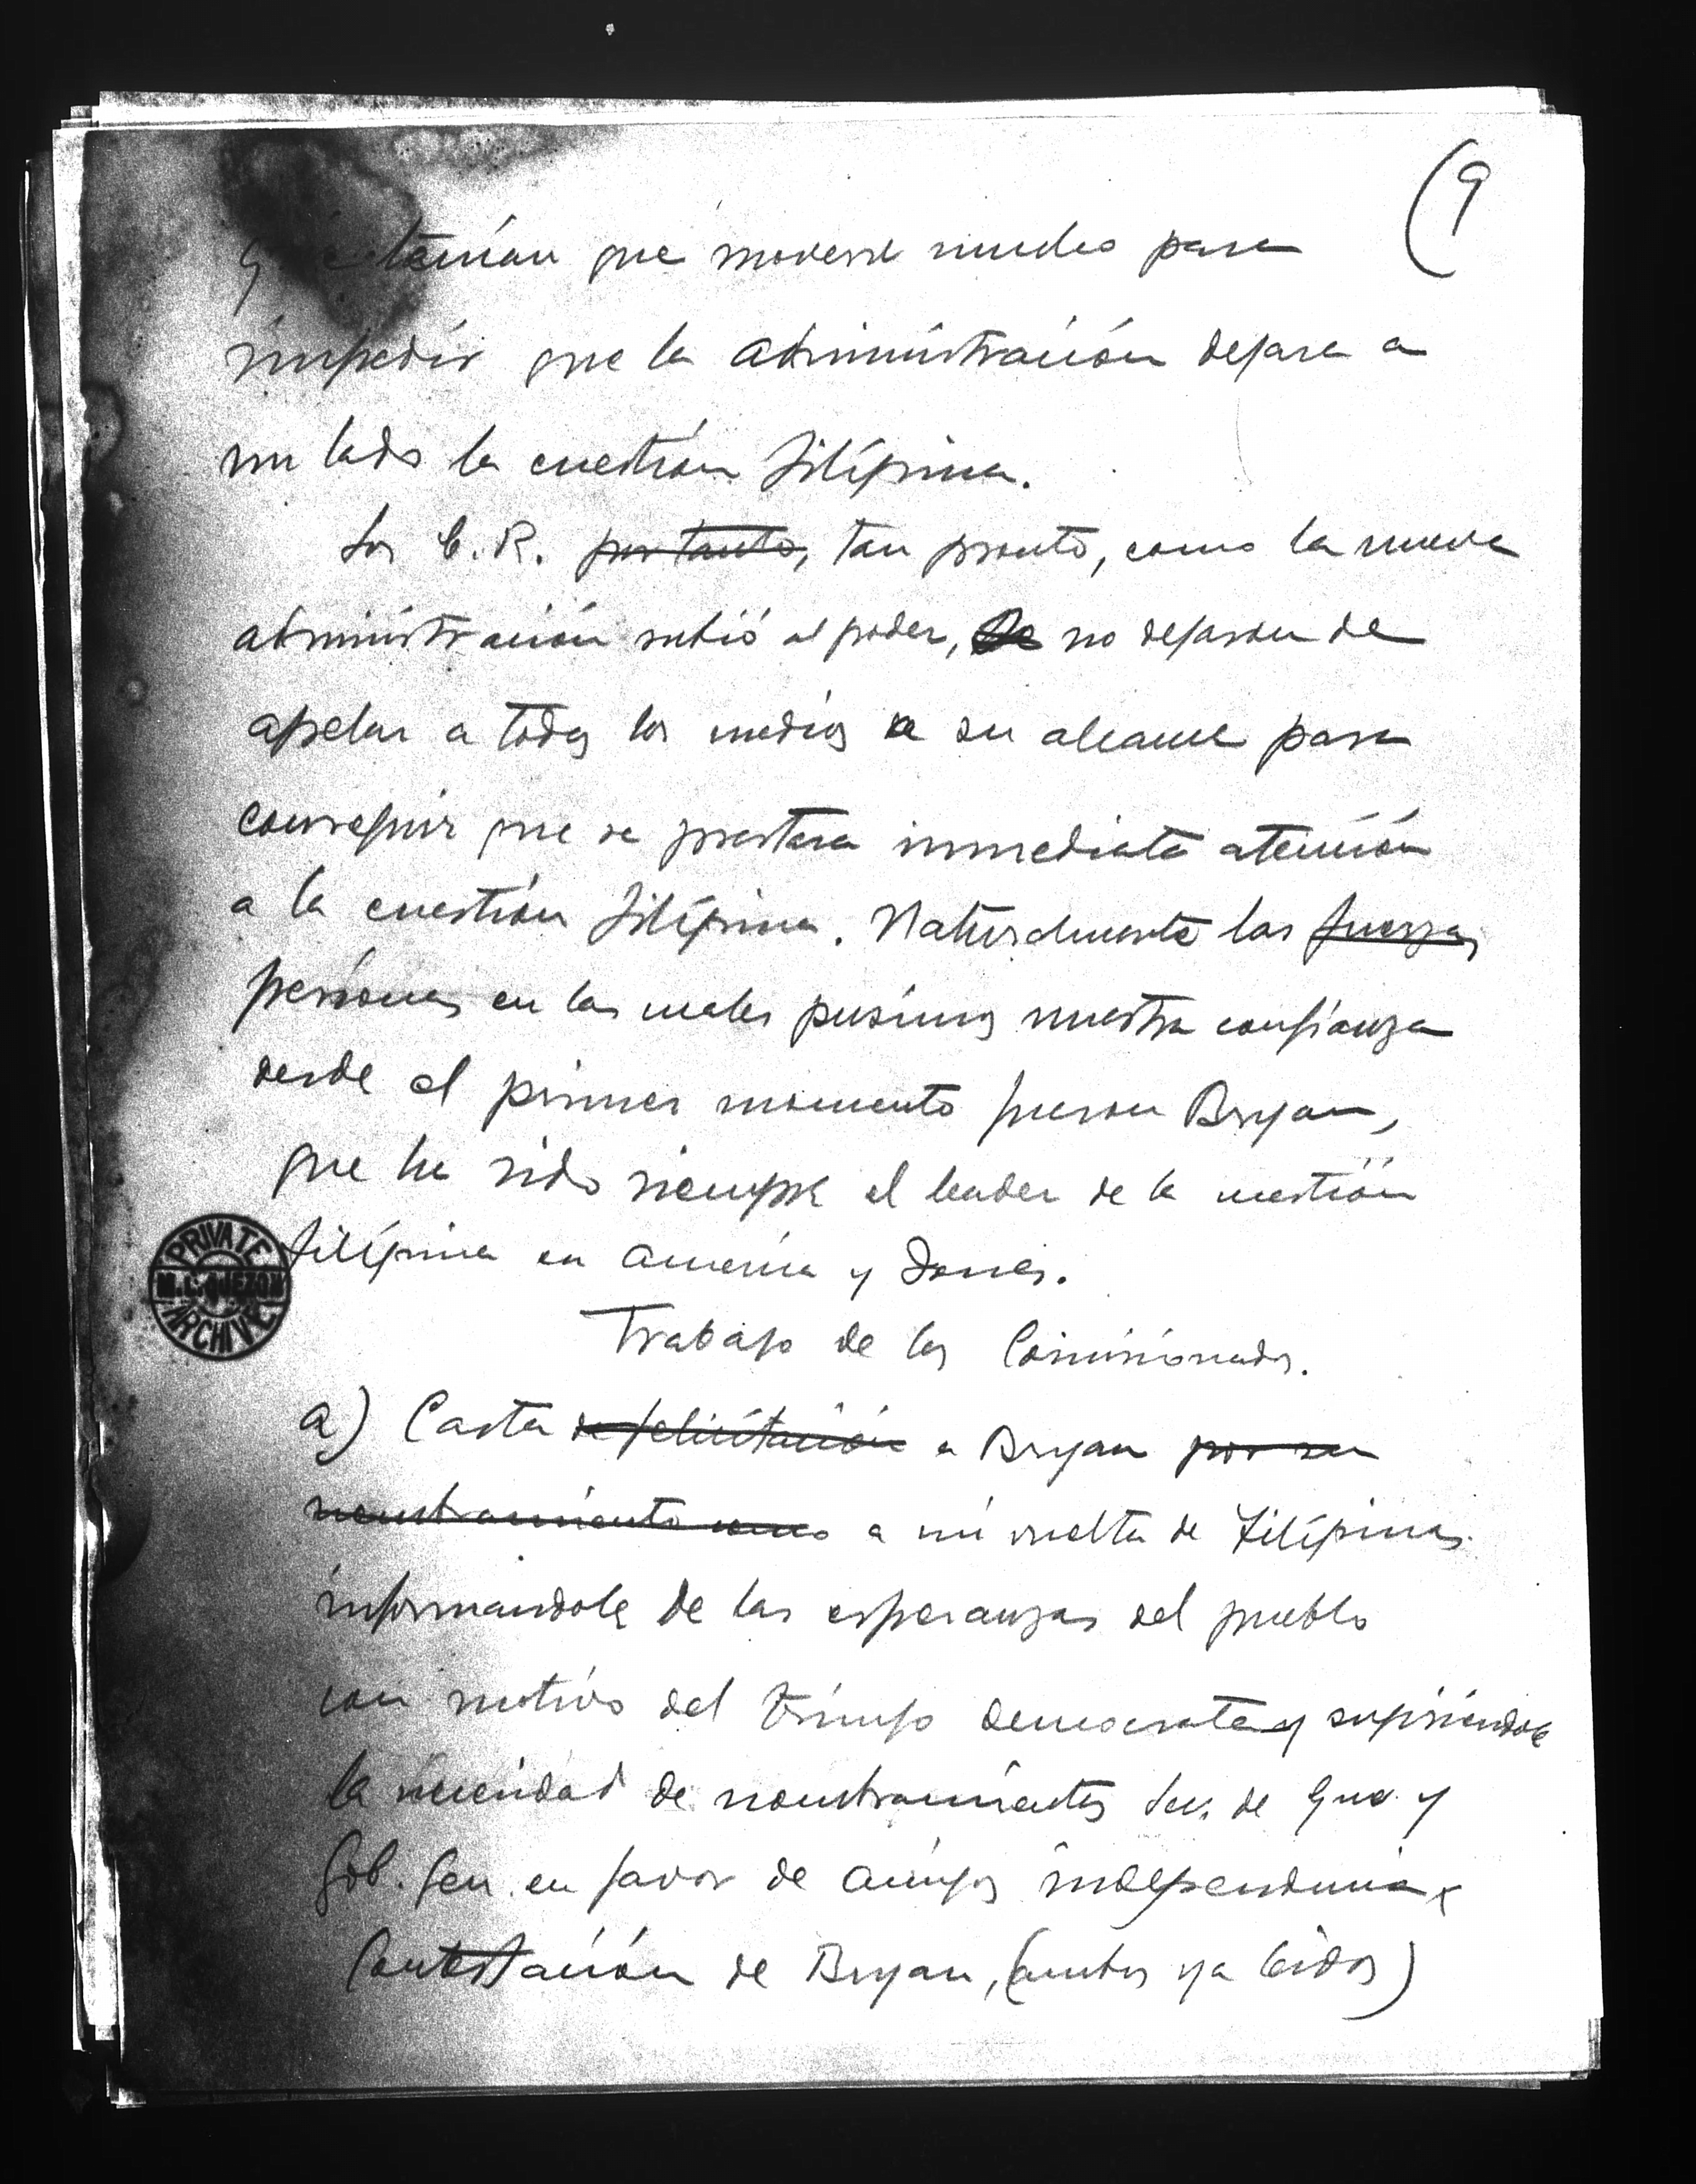 (9
que tenían que moverse mucho para
impedir que la administración dejara a
un lado la cuestión filipina.
Los C.R. por tanto, tan pronto, como la nueva
administración subió al poder, no dejaron de
apelar a todos los medios a su alcance para
conseguir que se prestara inmediata atención
a la cuestión filipina. Naturalmente las fuerzas
personas en las cuales pusimos nuestra confianza
desde el primer momento fueron Bryan,
que ha sido siempre el leader de la cuestión
filipina en America y Jones.
Trabajo de los Comisionados.
a) Carta de felicitación a Bryan por su
nombramiento como a mi vuelta de Filipinas
informandole de las esperanzas del pueblo
con motivo del triunfo democrata y sugiriéndole
la necesidad de nombramientos Sec. de Gue. y
Gob. Gen. en favor de amigos independencia
Contestación de Bryan, (ambos ya leidos)
PRIVATE
M. L. QUEZON
ARCHIVE